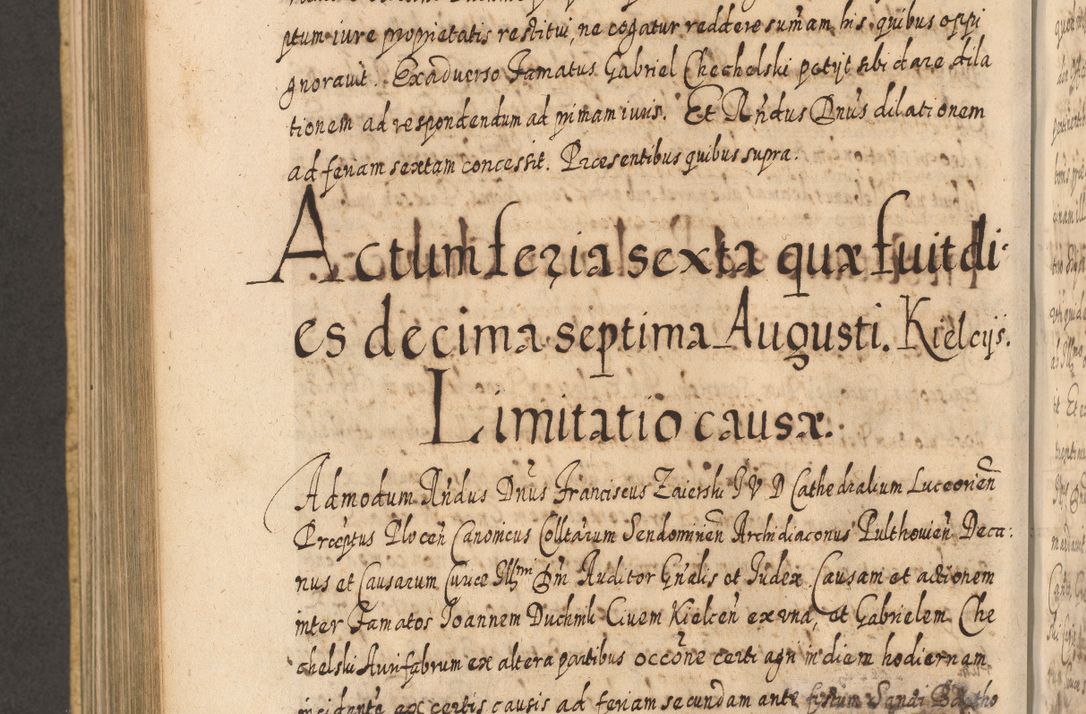 ptum iure proprietatis restitui, ne cogatur reddere sum̃am his quibus oppi
gnorauit. Exaduerso Famatus Gabriel Chechelski petijt sibi dare dila
tionem ad respondendum ad primam iuris. Et Rñdus Dnũs dilationem
ad feriam sextam concessit. Præsentibus quibus supra.
Actum feria sexta quæ fuit di-
es decima septima Augusti. Kielcijs.
Limitatio causæ.
Admodum Rñdus Dnũs Franciscus Zaierski I V D Cathedralium Luceorień
Præptus Plocen̄ Canonicus Colltarum Sendomirień Archidiaconus Pulthouień Deca:
nus et Causarum Curiæ Illmi Auditor Gnãlis et Iudex. Causam et actionem
inter Famatos Ioannem Duchnik Ciuem Kielceń ex vna, et Gabrielem Che
chelski Aurifabrum ex altera partibus occõne certi agri in diem hodiernam
ex certis causis ad feriam secundam ante festum Sancti Bartho